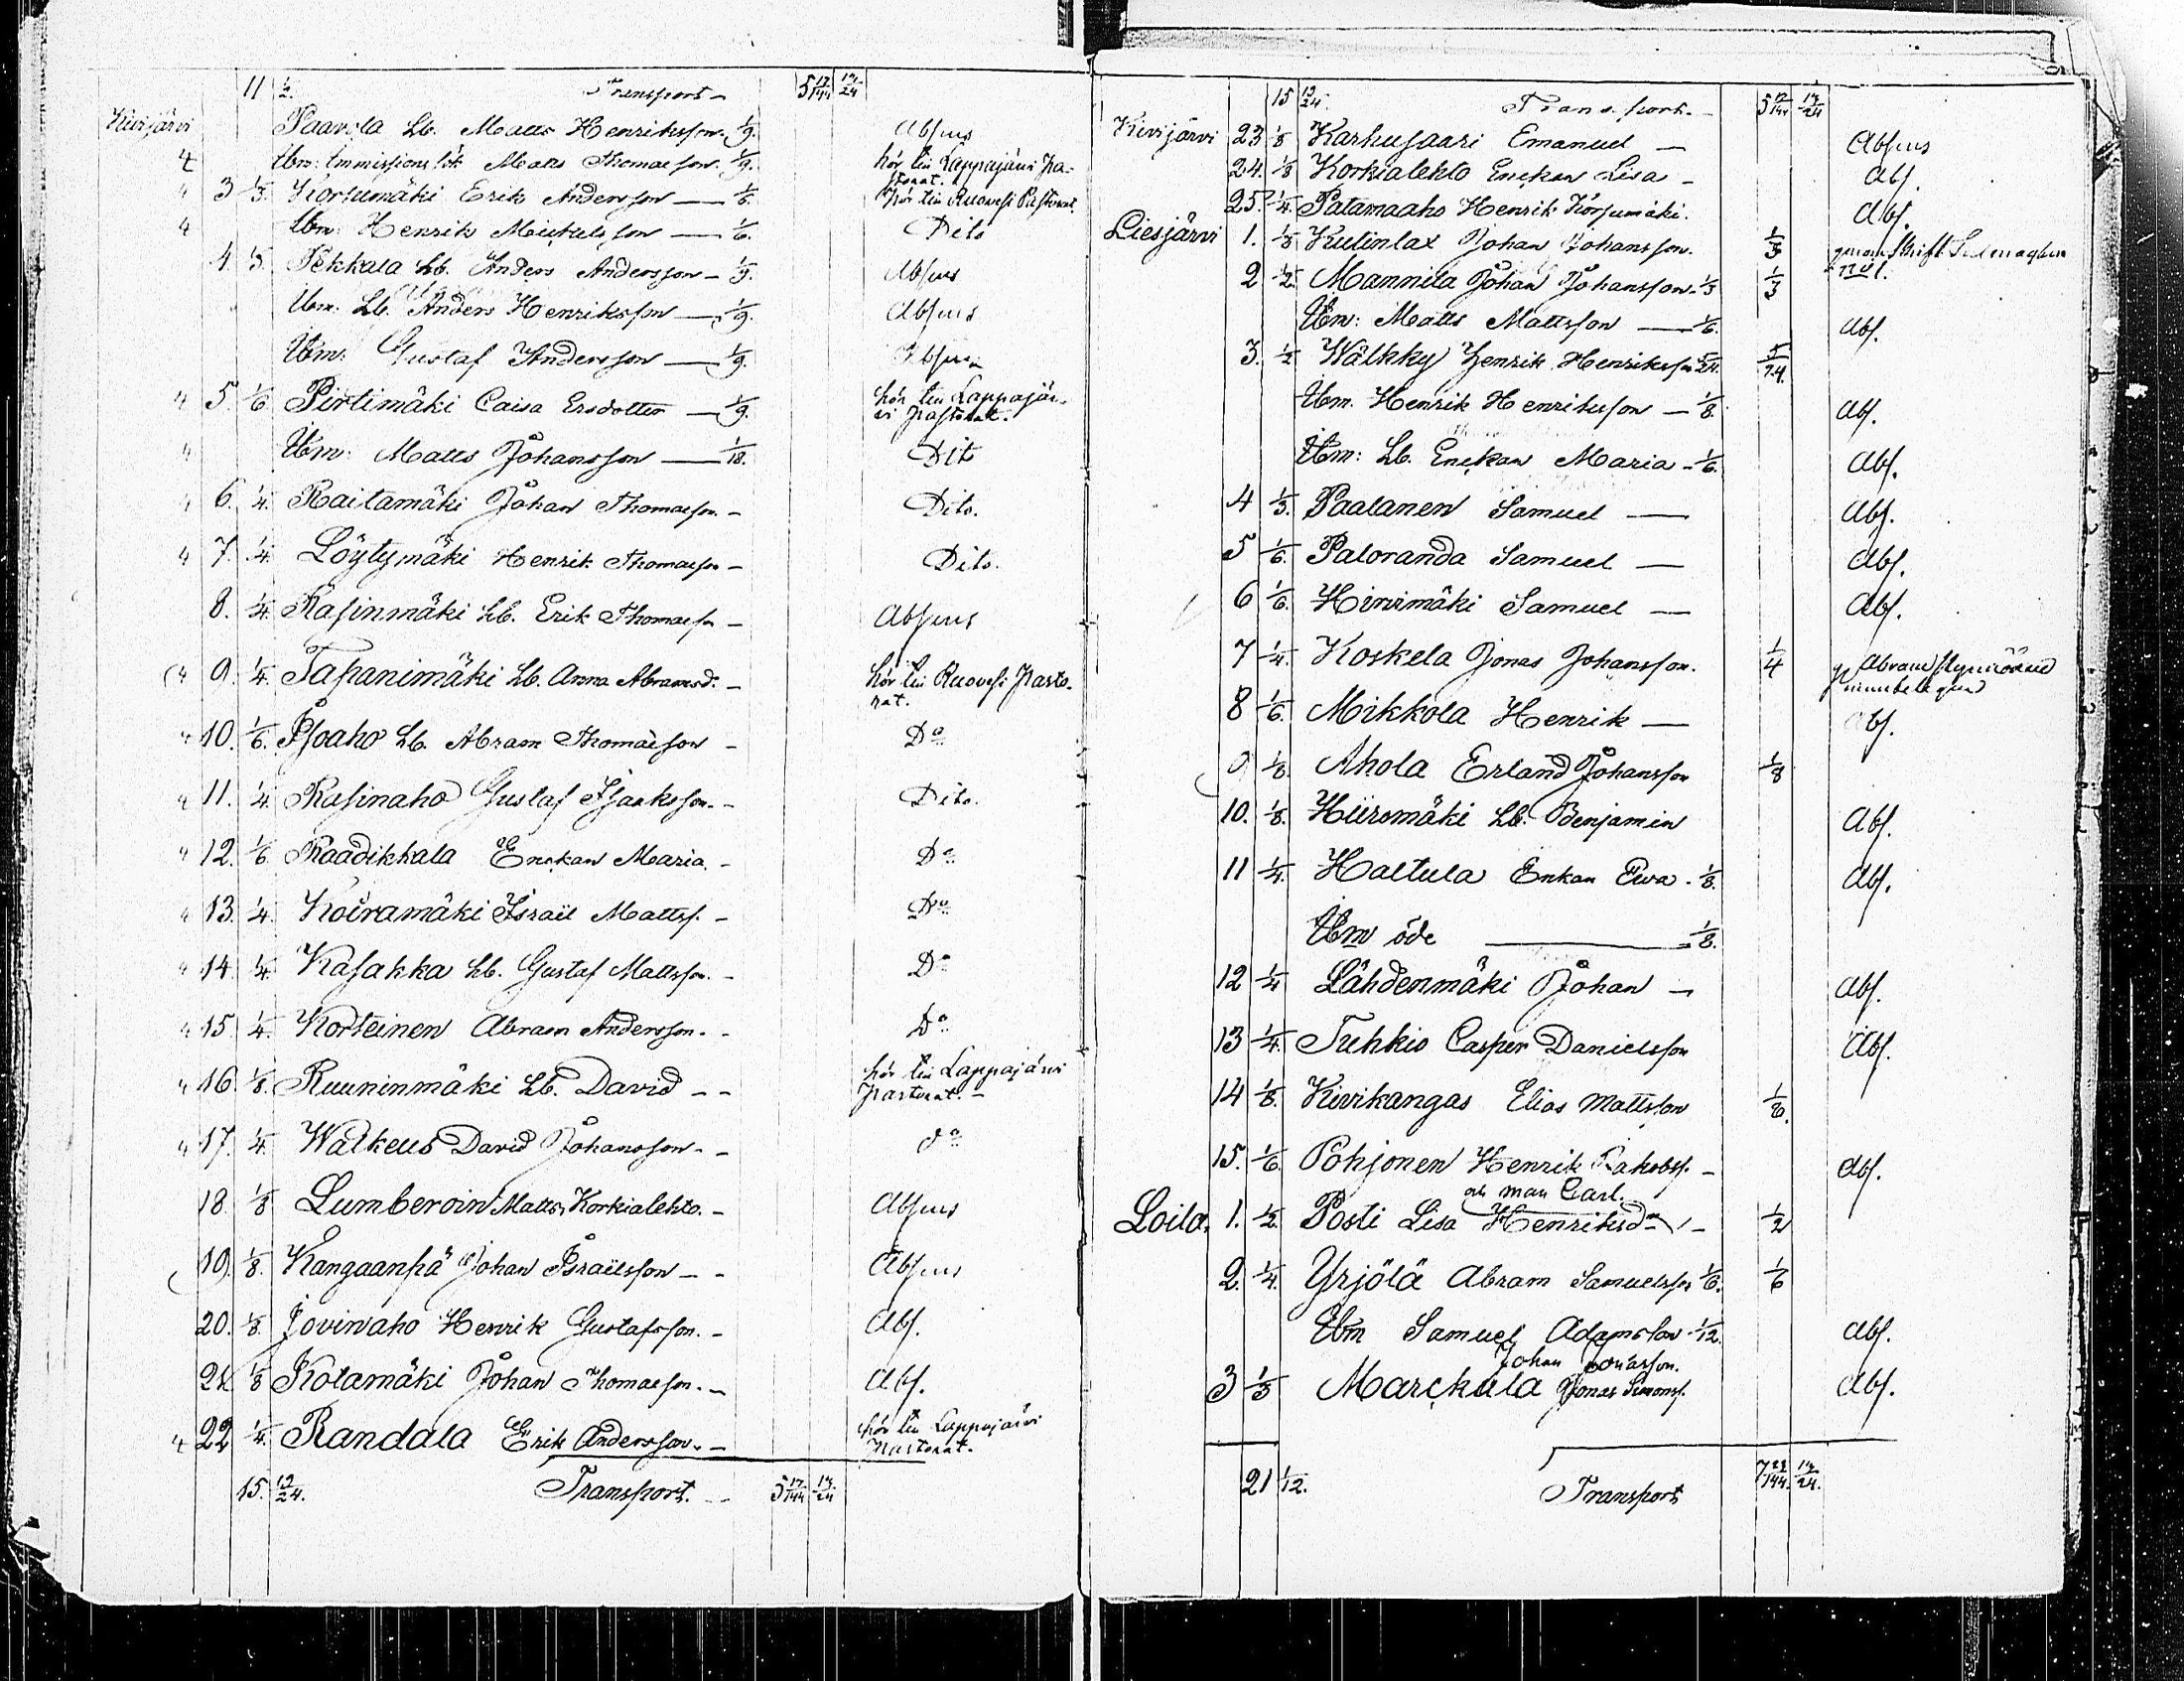 11 1/2. Transport - 5 17/144 13/24
Kivijärvi Paavola Lb. Matts Henriksson. 1/9. Absens
4 Ibm: Matts Thomasson. 1/9. hör till Lappajärvi Pa-
storat.
" 3 1/3. Korsumäki Erik Andersson — 1/6. hör till Ruovesi Pastorat.
4 Ibm: Henrik Michelsson — 1/6. Dito
4 1/3. Pekkala Lb. Anders Andersson - 1/9. Absens
Ibm: Lb. Anders Henriksson — 1/9. Absens
Ibm: Gustaf Andersson — 1/9. Absens
" 5. 1/6. Pirtimäki Caisa Ersdotter — 1/9. hör till Lappajär-
vi pastorat.
" Ibm: Matts Johansson — 1/18. Dito
" 6. 1/4. Raitamäki Johan Thomasson. - Dito.
" 7. 1/4. Löytymäki Henrik Thomasson - Dito.
8. 1/4. Rasinmäki Lb. Erik Thomasson - Absens
" 9. 1/4. Tapanimäki Lb. Anna Abramsd. - hör till Ruovesi Pasto-
rat.
" 10. 1/6. Isoaho Lb. Abram Thomasson - Do
" 11. 1/4. Rasinaho Gustaf Isaksson. - Dito.
" 12. 1/6. Raadikkala Enckan Maria. - Do
" 13. 1/4. Koiramäki Israil Mattss. - Do
" 14. 1/4. Kasakka Lb. Gustaf Mattsson. - Do
" 15. 1/4. Korteinen Abram Andersson. - Do
" 16. 1/8. Ruuninmäki Lb. David - - hör till Lappajärvi
Pastorat. -
" 17. 1/4. Walkeus David Johansson. - do
18. 1/8 Lumberoin Matts Korkialehto. - Absens
19. 1/8. Kangaanpä Johan Israilsson - - Absens
20. 1/8. Jovinaho Henrik Gustafsson. - Abs.
21. 1/8 Kotamäki Johan Thomasson. - Abs.
" 22 1/4. Randala Erik Andersson. - hör till Lappajärvi
Pastorat.
15. 13/24. Transport. - 5 17/144 13/24
15 13/24. Transport. - 5 17/144 13/24
Kivijärvi 23 1/8 Karhusaari Emanuel — Absens
24. 1/8 Korkialehto Enckan Lisa - Abs.
25. 1/4. Patamaaho Henrik Korsumäki. Abs.
Liesjärvi 1. 1/3 Kutinlax Johan Johansson. 1/3
2 1/2. Mannila Johan Johansson. 1/3 1/3
Ibm: Matts Mattsson — 1/6. Abs.
3. 1/2 Wälkky Henrik Henriksson 5/24. 5/24.
Ibm. Henrik Henriksson — 1/8. Abs.
Ibm: Lb. Enckan Maria - 1/6. Abs.
4 1/3. Paalanen Samuel — Abs.
5 1/6. Paloranda Samuel — Abs.
6 1/6. Hirvimäki Samuel — Abs.
7 1/4. Koskela Jonas Johansson. 1/4 Abram
8 1/6. Mikkola Henrik — Abs.
9 1/8. Ahola Erland Johansson 1/8
10. 1/8. Hiiromäki Lb. Benjamin Abs.
11 1/4. Haltula Enkan Ewa. 1/8. Abs.
Ibm öde — 1/8.
12 1/4 Lähdenmäki Johan - Abs.
13 1/4. Tuhkio Casper Danielsson Abs.
14 1/8. Kivikangas Elias Mattsson 1/8.
15. 1/6. Pohjonen Henrik Jakobss. - Abs.
och man Carl.
Loila. 1. 1/2. Posti Lisa Henriksdr - 1/2
2. 1/4. Yrjölä Abram Samuelsson 1/6. 1/6
Ibm Samuel Adamsson 1/12. Abs.
Johan Jonasson.
3 1/3 Marckula Jonas Simonss. Abs.
21 1/12. Transport 7 23/144. 13/24.